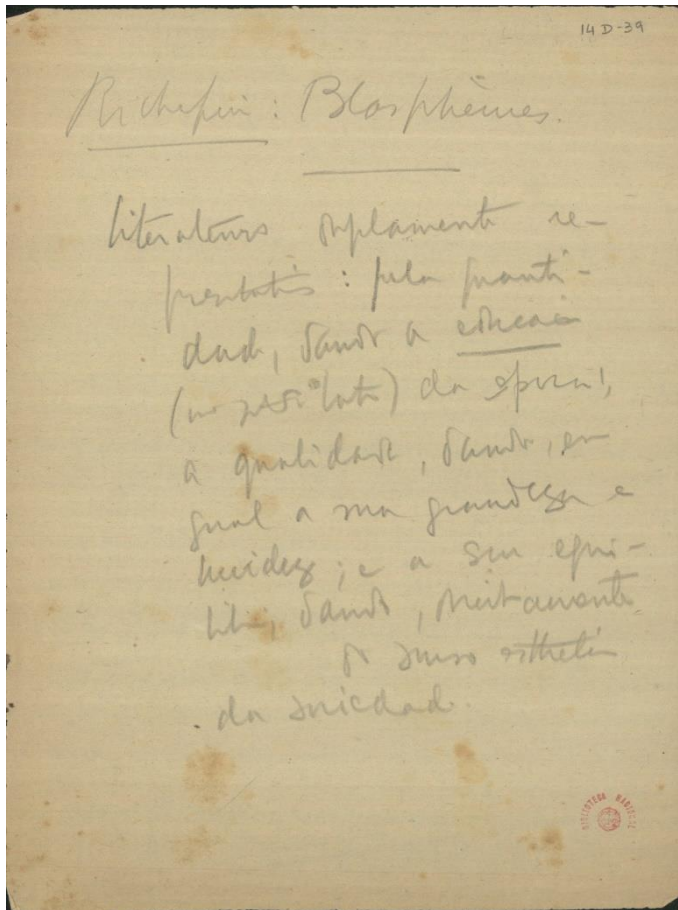 14 D-39
Richepin: Blasphèmes.
literaturas amplamente re-
presentativas: pela quanti-
dade, dando a educação
(no sentido lato) da epoca;
a qualidade, dando, em
gual a sua grandeza e
lucidez; e a seu equi-
librio, dando,
do senso esthetico
da sociedade.
BIBLIOTECA NACIONAL